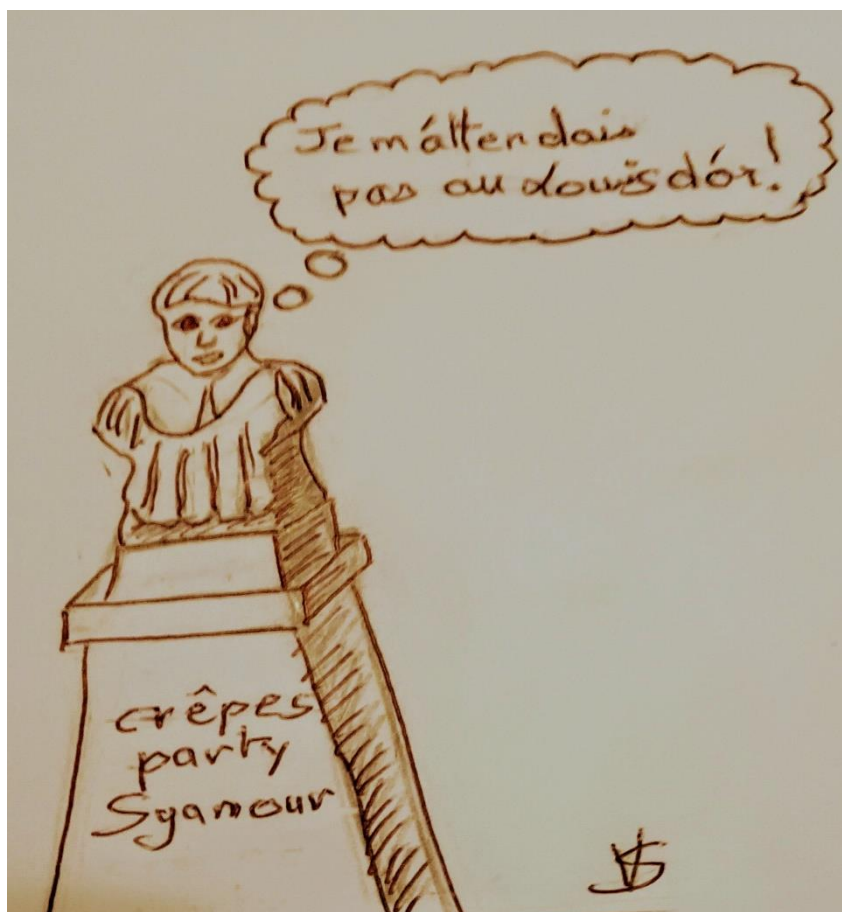 Je m'attendais
pas au Louis d'or!
crêpes
party
Syamour